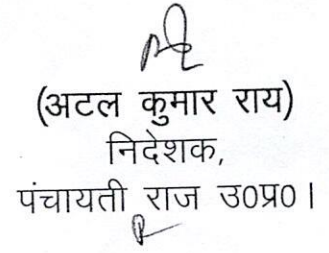 (अटल कुमार राय)
निदेशक,
पंचायती राज उ0प्र0।